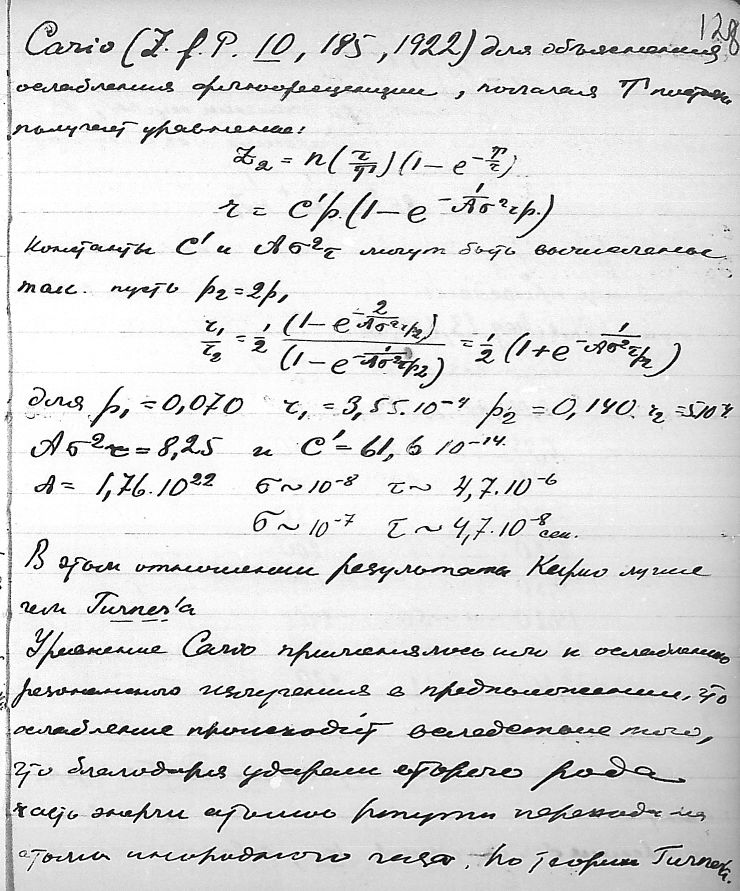 128
Cario (Z. f. P. 10, 185, 1922) для объяснения
ослабления флюоресценции, полагая T
получает уравнение:
Z₂ = n(τ/T)(1 − e^(−T/τ))
r = C'p.(1 − e^(−1/(Aσ²τp.)))
Константы C' и Aσ²τ могут быть вычислены
так. пусть p₂ = 2p₁
r₁/r₂ = 1/2 (1 − e^(−2/(Aσ²τp₂)))/(1 − e^(−1/(Aσ²τp₂))) = 1/2 (1 + e^(−1/(Aσ²τp₂)))
для p₁ = 0,070 r₁ = 3,55.10⁻⁴ p₂ = 0,140. r₂ = 5.10⁻⁴.
Aσ²τ = 8,25 и C' = 61,6 10⁻¹⁴.
A = 1,76.10²² σ ~ 10⁻⁸ τ ~ 4,7.10⁻⁶
σ ~ 10⁻⁷ τ ~ 4,7.10⁻⁸ сек.
В этом отношении результаты Карио лучше
чем Turner'а
Уравнение Cario применялось или к ослаблению
резонансного излучения в предположении, что
ослабление происходит вследствие того,
что благодаря ударам второго рода
часть энергии атомов ртути переходит на
атомы инородного газа. По теории Turner'а.